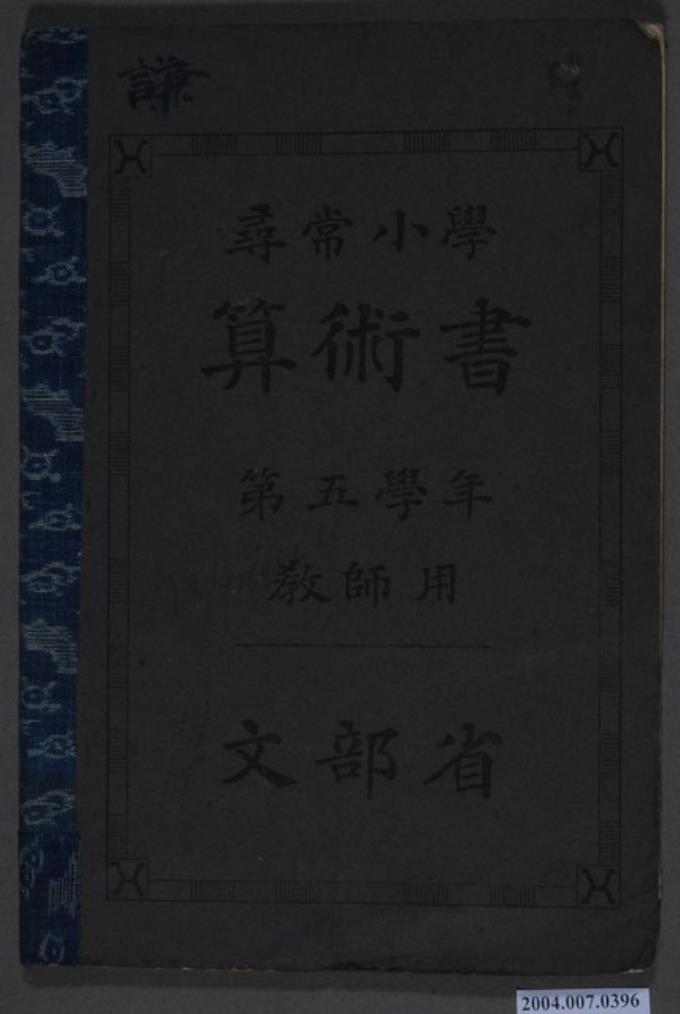 謙
尋常小學
算術書
第五學年
教師用
文部省
2004.007.0396